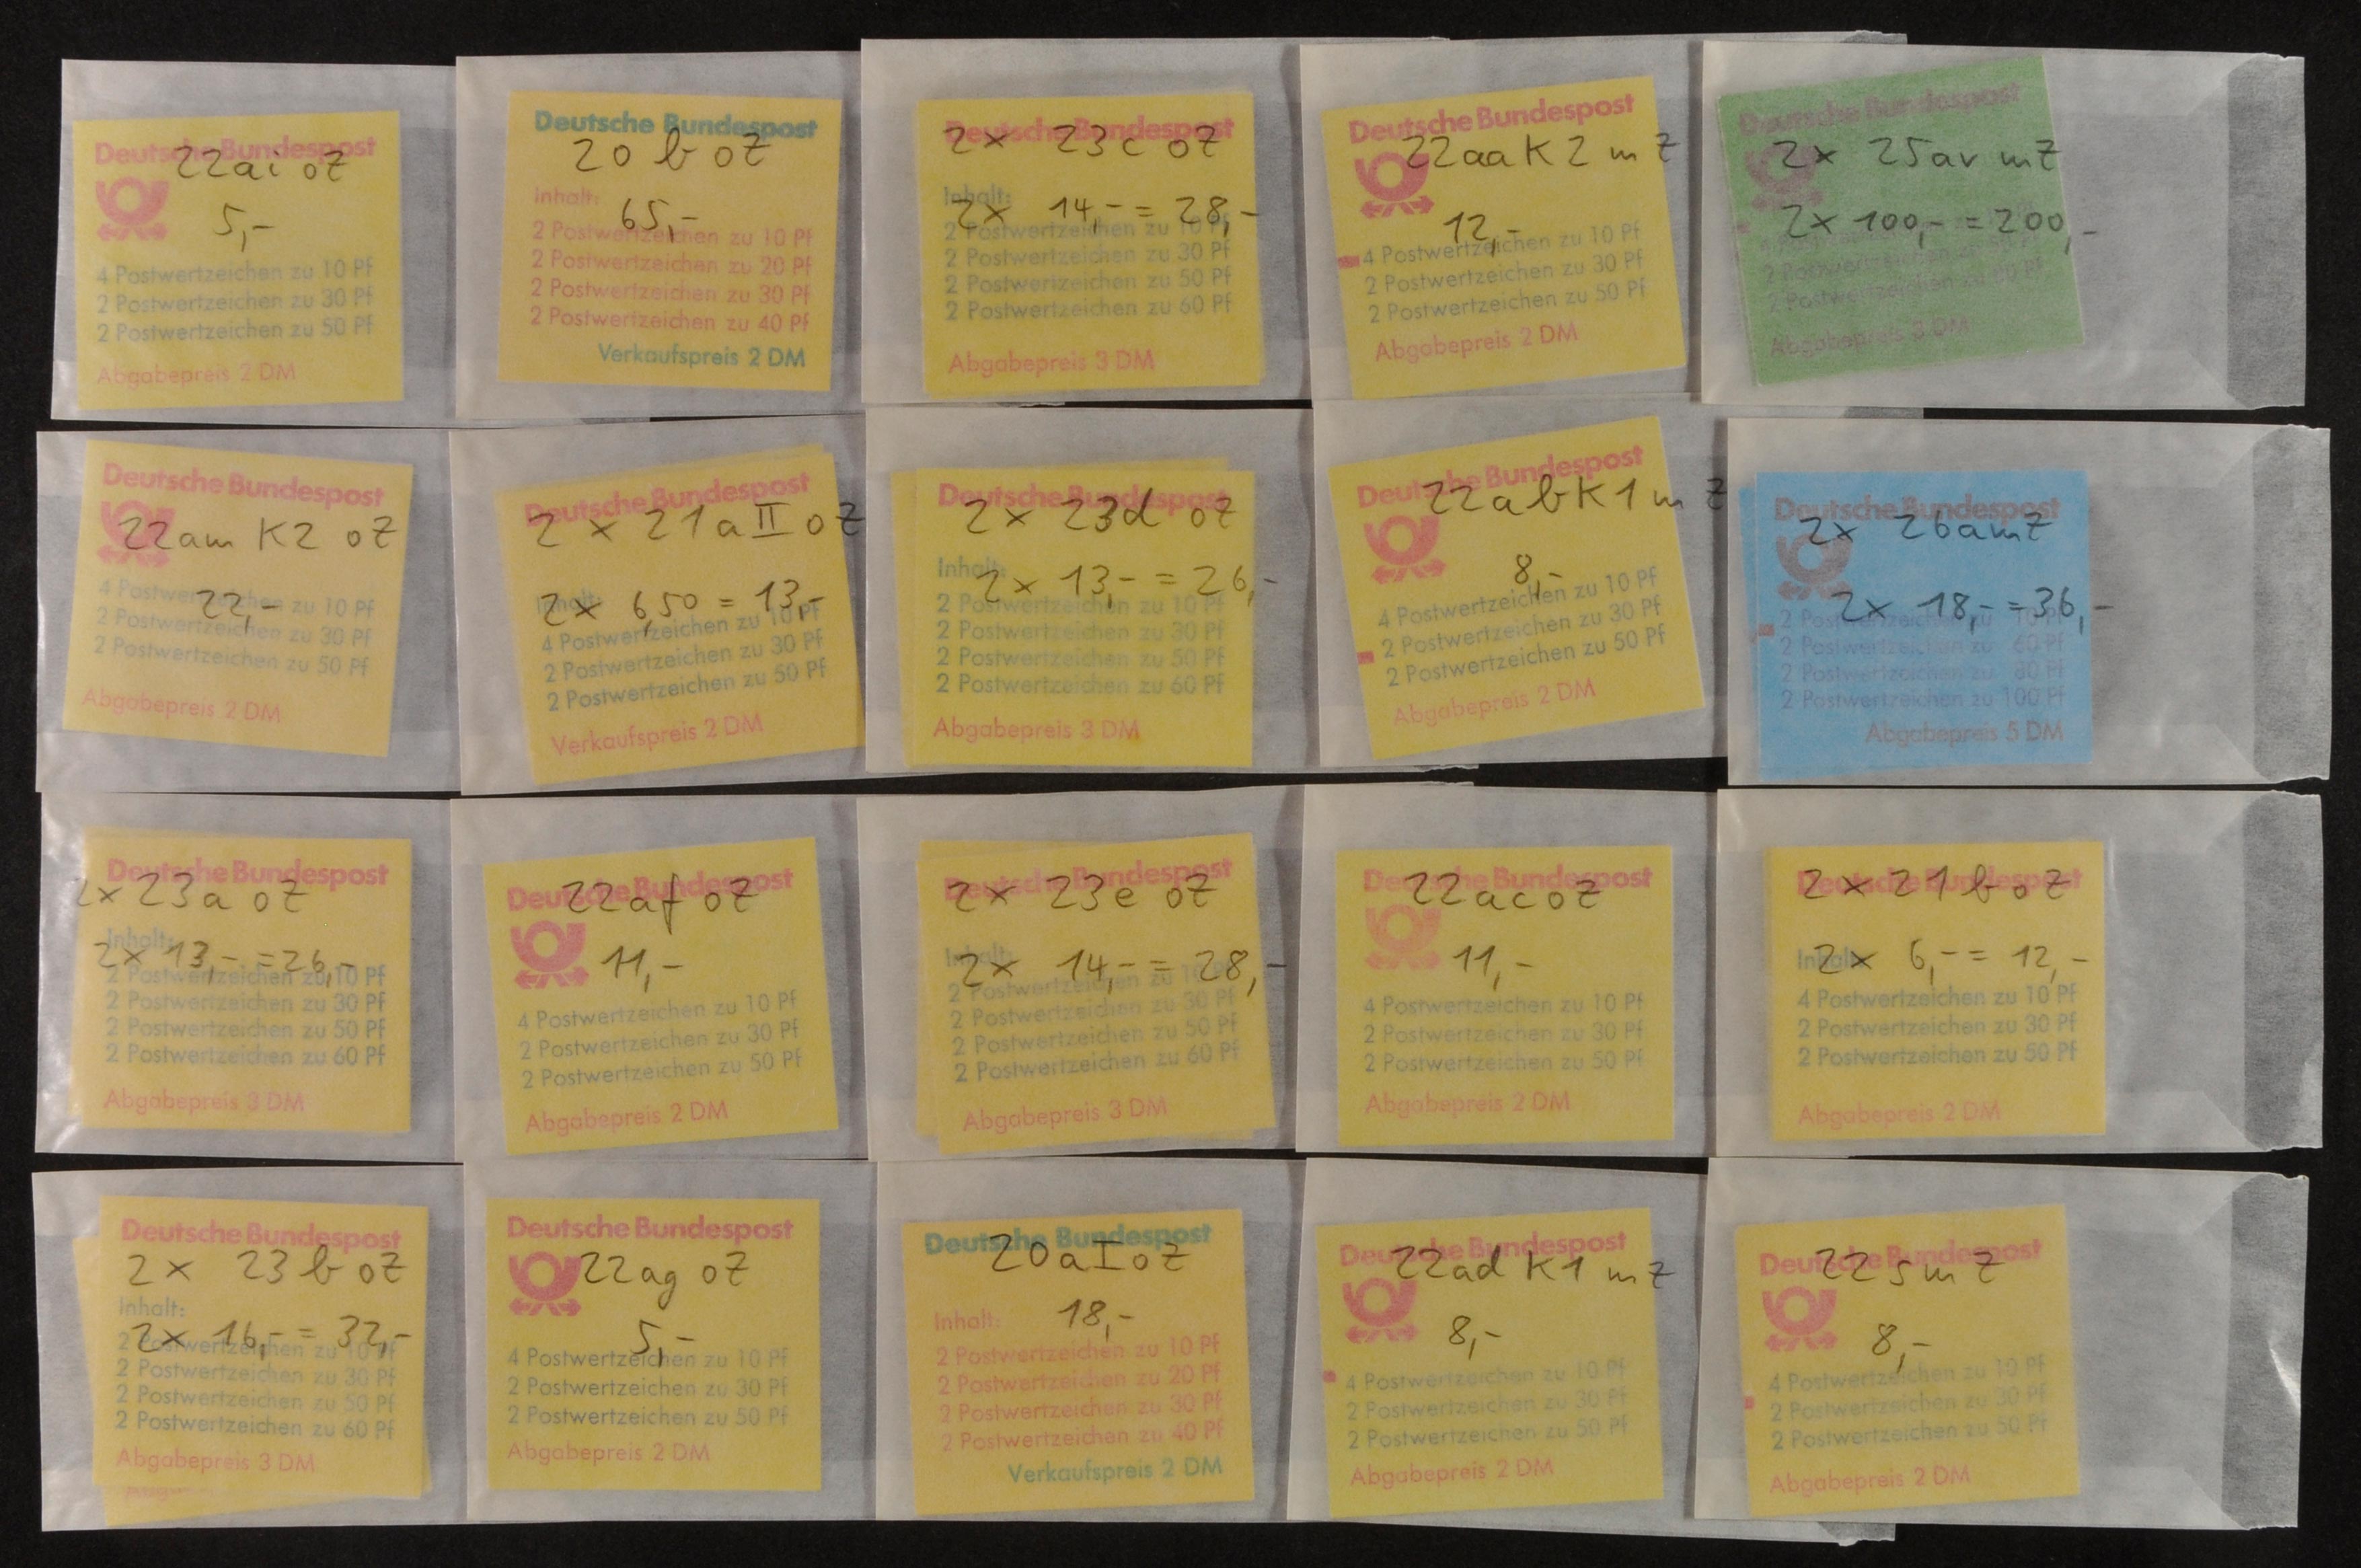 Deutsche Bundespost
22ai oZ
5,-
4 Postwertzeichen zu 10 Pf
2 Postwertzeichen zu 30 Pf
2 Postwertzeichen zu 50 Pf
Abgabepreis 2 DM
Deutsche Bundespost
20 b oZ
Inhalt:
65,-
2 Postwertzeichen zu 10 Pf
2 Postwertzeichen zu 20 Pf
2 Postwertzeichen zu 30 Pf
2 Postwertzeichen zu 40 Pf
Verkaufspreis 2 DM
Deutsche Bundespost
2x 23c oZ
Inhalt:
2x 14,- = 28,-
2 Postwertzeichen zu 10 Pf
2 Postwertzeichen zu 30 Pf
2 Postwertzeichen zu 50 Pf
2 Postwertzeichen zu 60 Pf
Abgabepreis 3 DM
Deutsche Bundespost
22aa K2 mZ
12,-
4 Postwertzeichen zu 10 Pf
2 Postwertzeichen zu 30 Pf
2 Postwertzeichen zu 50 Pf
Abgabepreis 2 DM
Deutsche Bundespost
2x 25av mZ
2x 100,- = 200,-
2 Postwertzeichen
2 Postwertzeichen zu
Abgabepreis 3 DM
Deutsche Bundespost
22am K2 oZ
22,-
4 Postwertzeichen zu 10 Pf
2 Postwertzeichen zu 30 Pf
2 Postwertzeichen zu 50 Pf
Abgabepreis 2 DM
Deutsche Bundespost
2 x 21a II oZ
Inhalt:
2x 6,50 = 13,-
4 Postwertzeichen zu 10 Pf
2 Postwertzeichen zu 30 Pf
2 Postwertzeichen zu 50 Pf
Verkaufspreis 2 DM
Deutsche Bundespost
2x 23d oZ
Inhalt:
2x 13,- = 26,-
2 Postwertzeichen zu 10 Pf
2 Postwertzeichen zu 30 Pf
2 Postwertzeichen zu 50 Pf
2 Postwertzeichen zu 60 Pf
Abgabepreis 3 DM
Deutsche Bundespost
22ab K1 mZ
8,-
4 Postwertzeichen zu 10 Pf
2 Postwertzeichen zu 30 Pf
2 Postwertzeichen zu 50 Pf
Abgabepreis 2 DM
Deutsche Bundespost
2x 26amZ
2x 18,- = 36,-
2 Postwertzeichen zu 10 Pf
2 Postwertzeichen zu 60 Pf
2 Postwertzeichen zu 80 Pf
2 Postwertzeichen zu 100 Pf
Abgabepreis 5 DM
Deutsche Bundespost
2x 23a oZ
Inhalt:
2x 13,- = 26,-
2 Postwertzeichen zu 10 Pf
2 Postwertzeichen zu 30 Pf
2 Postwertzeichen zu 50 Pf
2 Postwertzeichen zu 60 Pf
Abgabepreis 3 DM
Deutsche Bundespost
22af oZ
11,-
4 Postwertzeichen zu 10 Pf
2 Postwertzeichen zu 30 Pf
2 Postwertzeichen zu 50 Pf
Abgabepreis 2 DM
Deutsche Bundespost
2x 23e oZ
Inhalt:
2x 14,- = 28,-
2 Postwertzeichen zu 10 Pf
2 Postwertzeichen zu 30 Pf
2 Postwertzeichen zu 50 Pf
2 Postwertzeichen zu 60 Pf
Abgabepreis 3 DM
Deutsche Bundespost
22ac oZ
11,-
4 Postwertzeichen zu 10 Pf
2 Postwertzeichen zu 30 Pf
2 Postwertzeichen zu 50 Pf
Abgabepreis 2 DM
Deutsche Bundespost
2x 21b oZ
Inhalt:
2x 6,- = 12,-
4 Postwertzeichen zu 10 Pf
2 Postwertzeichen zu 30 Pf
2 Postwertzeichen zu 50 Pf
Abgabepreis 2 DM
Deutsche Bundespost
2x 23b oZ
Inhalt:
2x 16,- = 32,-
2 Postwertzeichen zu 10 Pf
2 Postwertzeichen zu 30 Pf
2 Postwertzeichen zu 50 Pf
2 Postwertzeichen zu 60 Pf
Abgabepreis 3 DM
Deutsche Bundespost
22ag oZ
5,-
4 Postwertzeichen zu 10 Pf
2 Postwertzeichen zu 30 Pf
2 Postwertzeichen zu 50 Pf
Abgabepreis 2 DM
Deutsche Bundespost
20a I oZ
Inhalt:
18,-
2 Postwertzeichen zu 10 Pf
2 Postwertzeichen zu 20 Pf
2 Postwertzeichen zu 30 Pf
2 Postwertzeichen zu 40 Pf
Verkaufspreis 2 DM
Deutsche Bundespost
22ad K1 mZ
8,-
4 Postwertzeichen zu 10 Pf
2 Postwertzeichen zu 30 Pf
2 Postwertzeichen zu 50 Pf
Abgabepreis 2 DM
Deutsche Bundespost
22s mZ
8,-
4 Postwertzeichen zu 10 Pf
2 Postwertzeichen zu 30 Pf
2 Postwertzeichen zu 50 Pf
Abgabepreis 2 DM